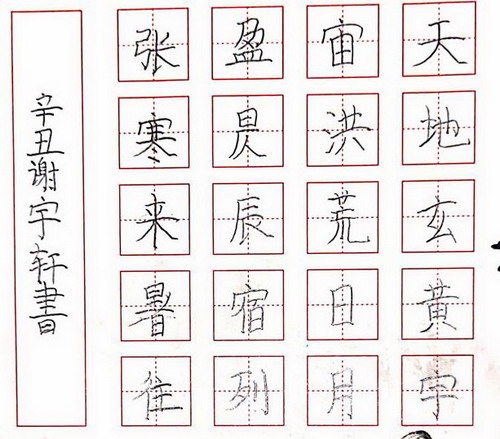 天地玄黄宇
宙洪荒日月
盈昃辰宿列
张寒来暑往
辛丑谢宇轩書